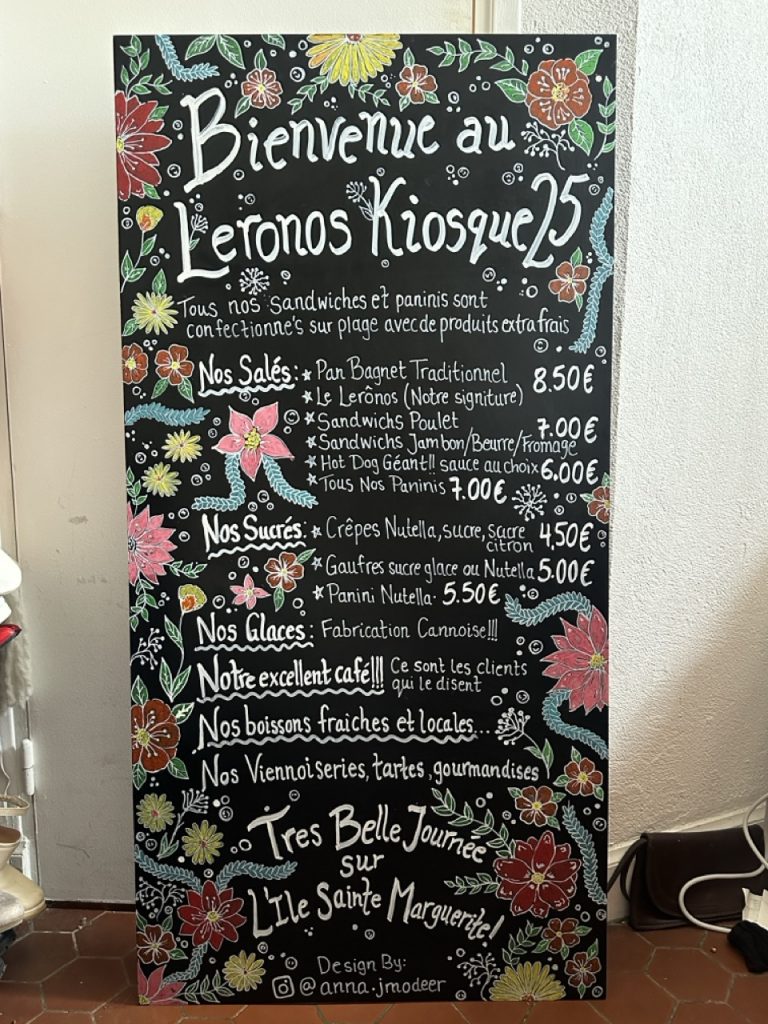 Bienvenue au
Leronos Kiosque 25
Tous nos sandwiches et paninis sont
confectionne's sur plage avec de produits extra frais
Nos Salés: ★ Pan Bagnet Traditionnel 8.50€
★ Le Lerônos (Notre signiture)
★ Sandwichs Poulet 7.00€
★ Sandwichs Jambon/Beurre/Fromage
★ Hot Dog Géant!! sauce au choix 6.00€
★ Tous Nos Paninis 7.00€
Nos Sucrés: ★ Crêpes Nutella, sucre, sucre citron 4,50€
★ Gaufres sucre glace ou Nutella 5.00€
★ Panini Nutella. 5.50€
Nos Glaces: Fabrication Cannoise!!!
Notre excellent café!!! Ce sont les clients
qui le disent
Nos boissons fraiches et locales...
Nos Viennoiseries, tartes, gourmandises
Tres Belle Journée
sur
L'Ile Sainte Marguerite!
Design By:
@anna.jmodeer